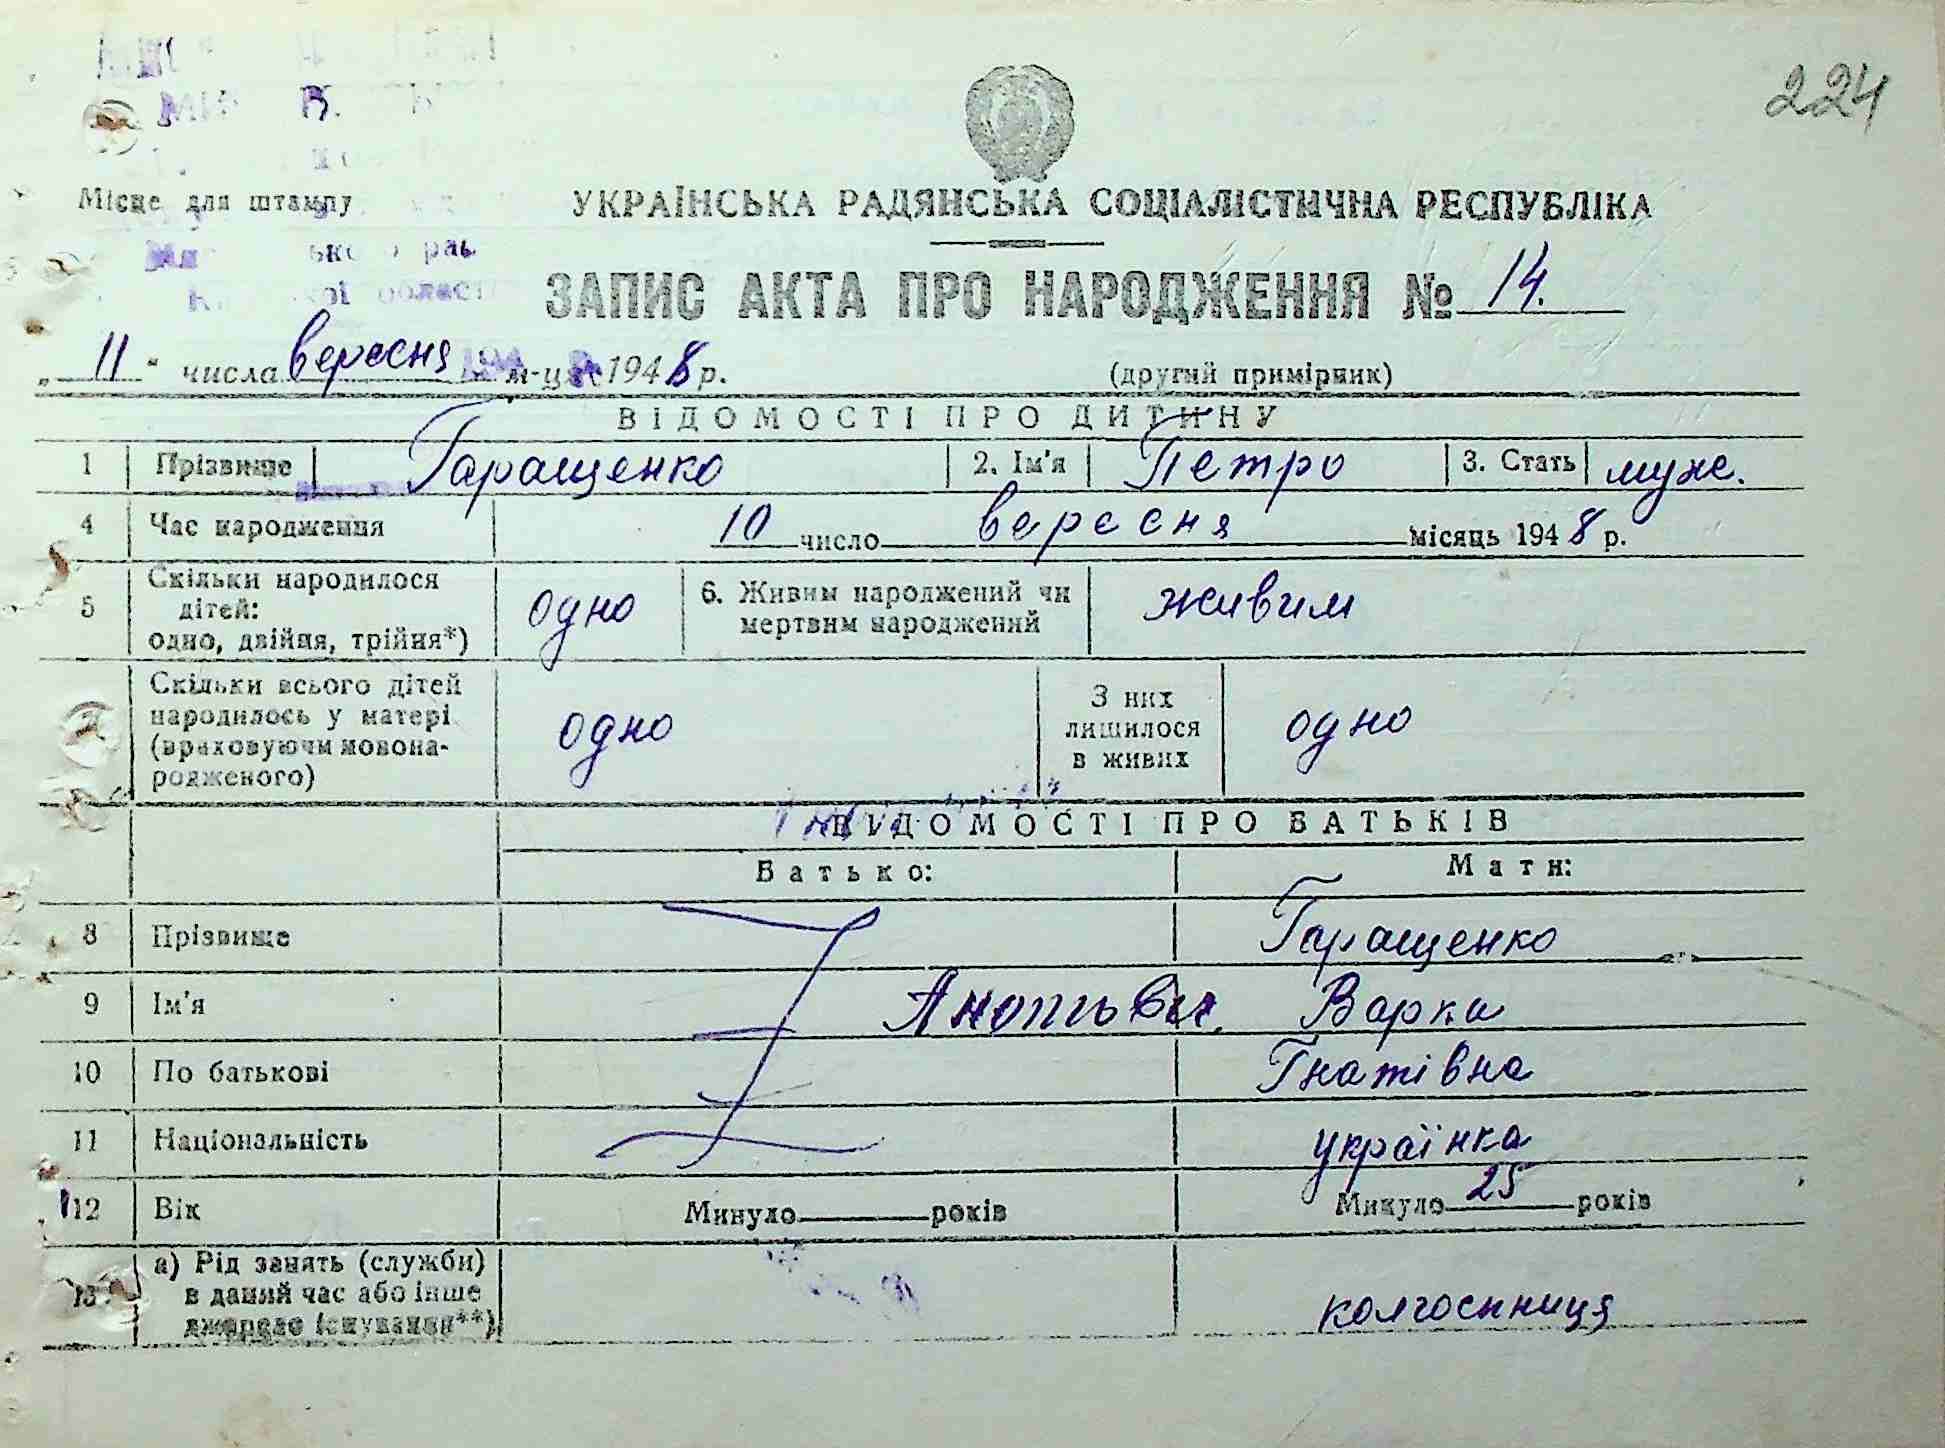 224
Місце для штампу
УКРАЇНСЬКА РАДЯНСЬКА СОЦІАЛІСТИЧНА РЕСПУБЛІКА
області
ЗАПИС АКТА ПРО НАРОДЖЕННЯ № 14.
„ 11 " числа вересня м-ця 1948 р. (другий примірник)
ВІДОМОСТІ ПРО ДИТИНУ
1 Прізвище Гаращенко 2. Ім'я Петро 3. Стать муж.
4 Час народження 10 число вересня місяць 1948 р.
5 Скільки народилося дітей: одно, двійня, трійня*) одно 6. Живим народжений чи мертвим народжений живим
Скільки всього дітей народилось у матері (враховуючи новонародженого) одно З них лишилося в живих одно
ВІДОМОСТІ ПРО БАТЬКІВ
Батько: Мати:
8 Прізвище Гаращенко
9 Ім'я Варка
10 По батькові Гнатівна
11 Національність українка
12 Вік Минуло років Минуло 25 років
13 а) Рід занять (служби) в даний час або інше джерело існування**) колгоспниця